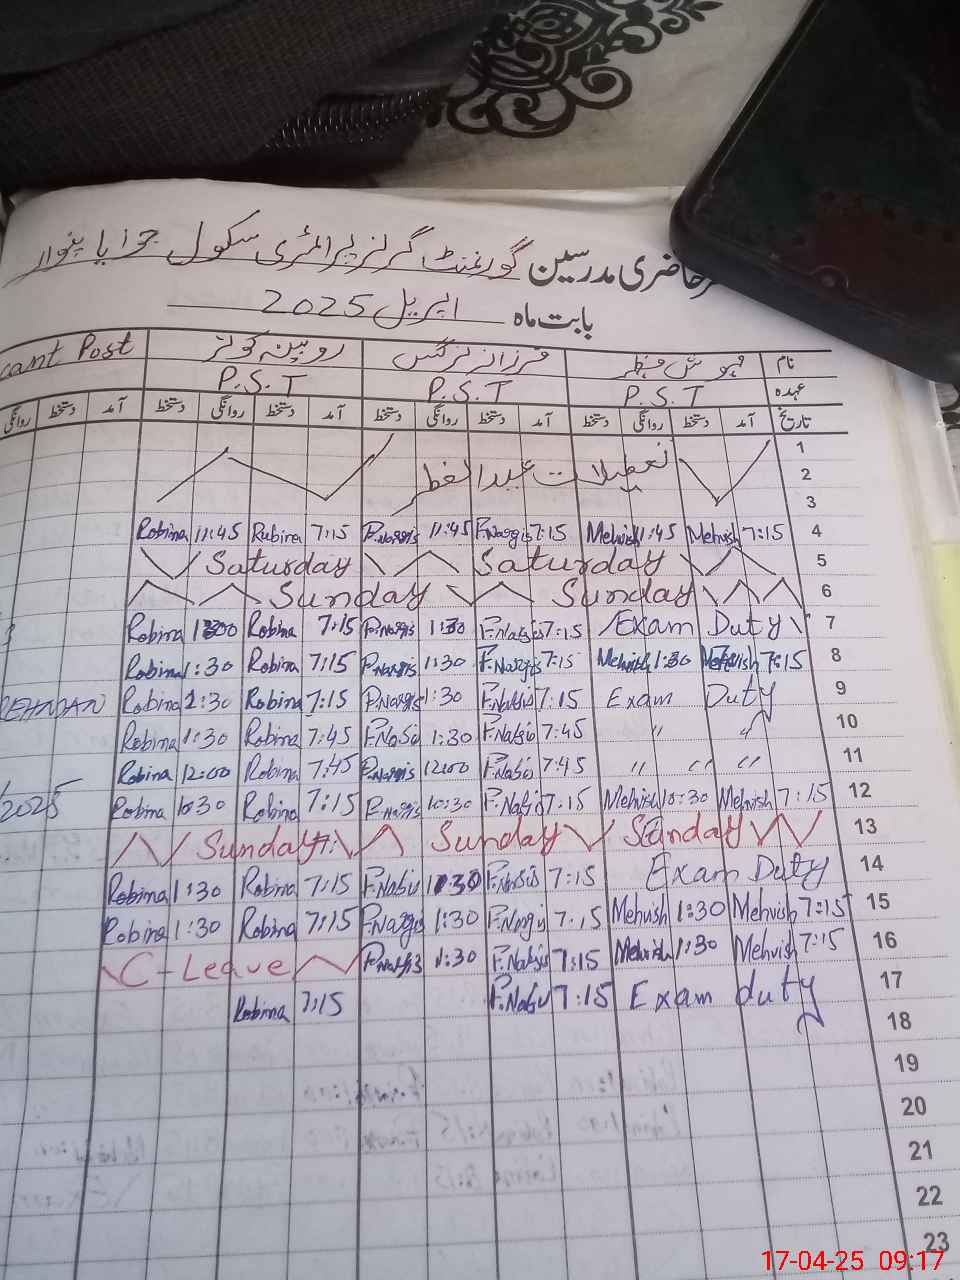 حاضری مدرسین گورنمنٹ گرلز پرائمری سکول جوایا پنوار
بابت ماہ اپریل 2025
نام مہوش منظر فرزانہ نرگس روبینہ کوثر cant Post
عہدہ P.S.T P.S.T P.S.T
تاریخ آمد دستخط روانگی دستخط آمد دستخط روانگی دستخط آمد دستخط روانگی دستخط آمد دستخط روانگی
1
2 تعطیلات عید الفطر
3
Robina 11:45 Rubina 7:15 F.Nargis 11:45 F.Nargis 7:15 Mehvish 11:45 Mehvish 7:15 4
Saturday Saturday 5
Sunday Sunday 6
Robina 1:30 Robina 7:15 F.Nargis 1:30 F.Nargis 7:15 Exam Duty 7
Robina 1:30 Robina 7:15 F.Nargis 1:30 F.Nargis 7:15 Mehvish 1:30 Mehvish 7:15 8
REHMAN Robina 1:30 Robina 7:15 F.Nargis 1:30 F.Nargis 7:15 Exam Duty 9
Robina 1:30 Robina 7:45 F.Nargis 1:30 F.Nargis 7:45 " " 10
Robina 12:00 Robina 7:45 F.Nargis 12:00 F.Nargis 7:45 " " " 11
2025 Robina 10:30 Robina 7:15 F.Nargis 10:30 F.Nargis 7:15 Mehvish 10:30 Mehvish 7:15 12
Sunday Sunday Sunday 13
Robina 1:30 Robina 7:15 F.Nargis 1:30 F.Nargis 7:15 Exam Duty 14
Robina 1:30 Robina 7:15 F.Nargis 1:30 F.Nargis 7:15 Mehvish 1:30 Mehvish 7:15 15
C-Leave F.Nargis 1:30 F.Nargis 7:15 Mehvish 1:30 Mehvish 7:15 16
Robina 7:15 F.Nargis 7:15 Exam duty 17
18
19
20
21
22
23
17-04-25 09:17